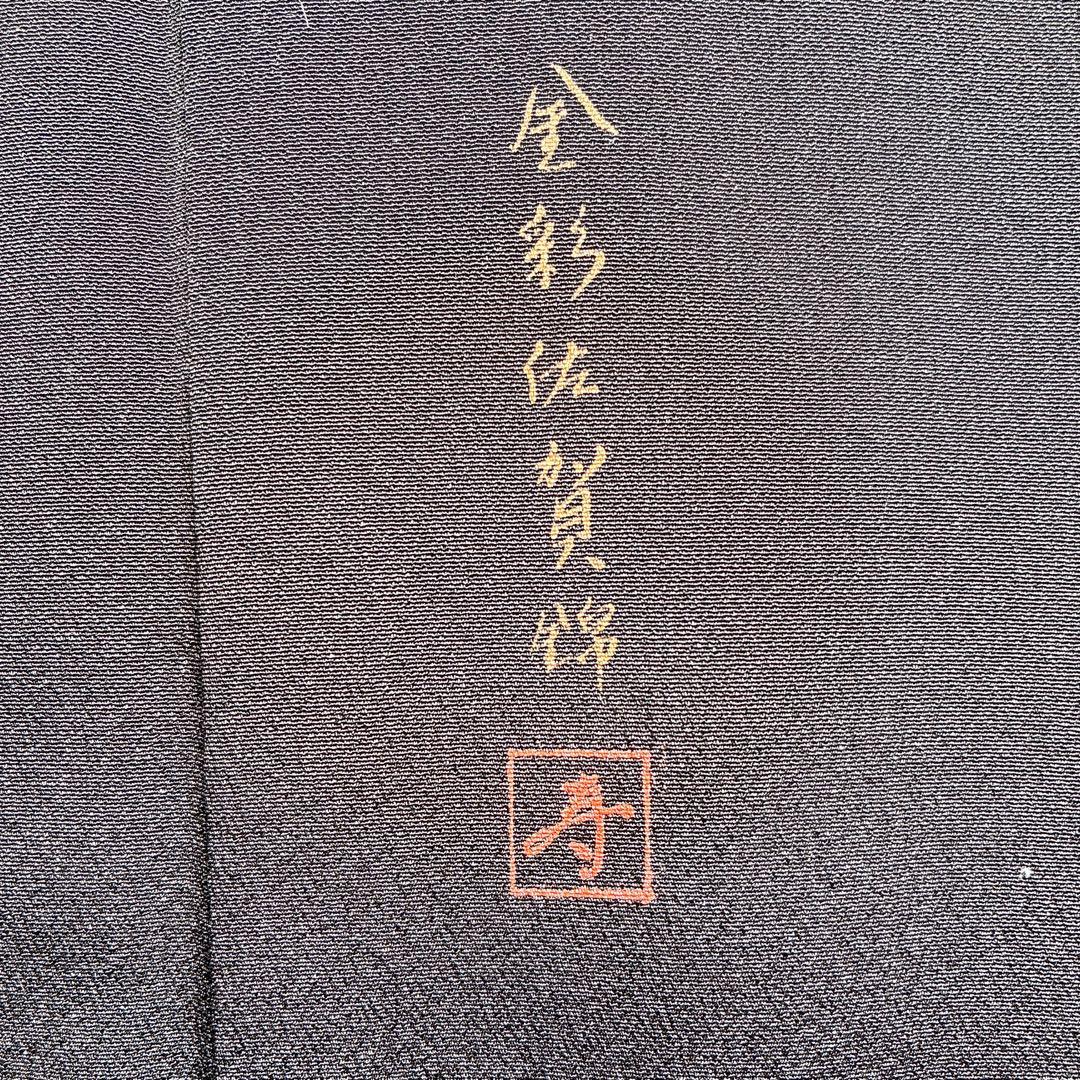 金彩佐賀錦
寿